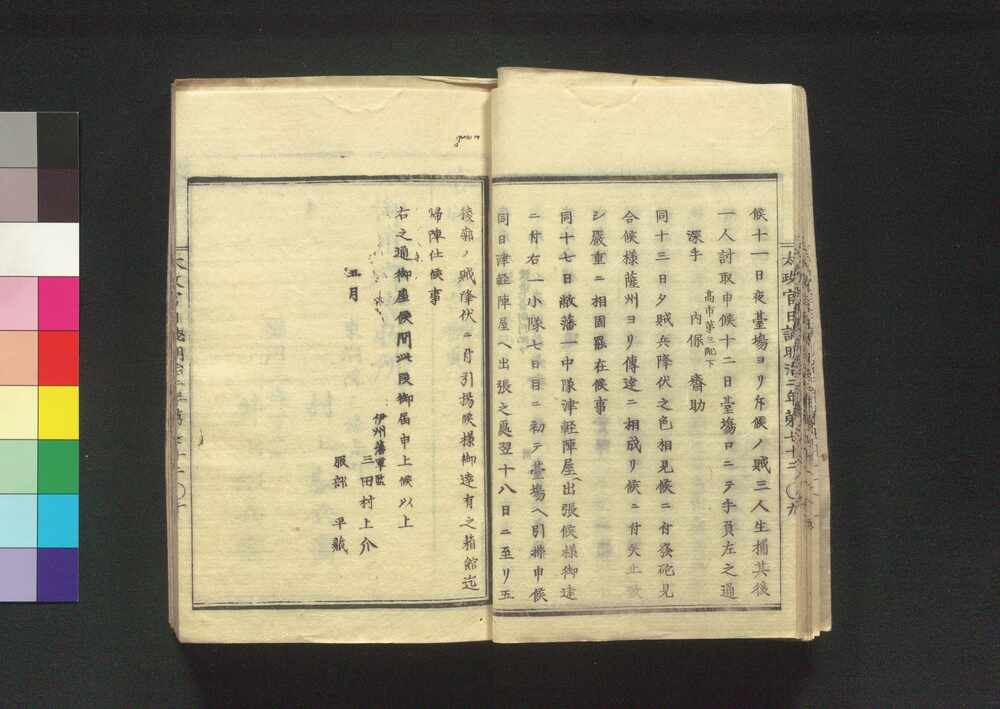 候十一日夜臺塲ヨリ斥候ノ賊三人生捕其後
一人討取申候十二日臺塲口ニテ手負左之通
高市第三配下
深手　内保　齊助
同十三日夕賊兵降伏之色相見候ニ付發砲見
合候様薩州ヨリ傳達ニ相成リ候ニ付矢止致
シ嚴重ニ相固罷在候事
同十七日敝藩一中隊津軽陣屋ヘ出張候様御達
ニ付右一小隊七日目ニ初テ臺塲ヘ引揚申候
同日津軽陣屋ヘ出張之處翌十八日ニ至リ五
稜郭ノ賊降伏ニ付引揚候様御達有之箱館迄
帰陣仕候事
右之通御座候間此段御届申上候以上
五月
伊州藩軍監
三田村上介
服部　平蔵
太政官日誌明治二年第七十二　〇九